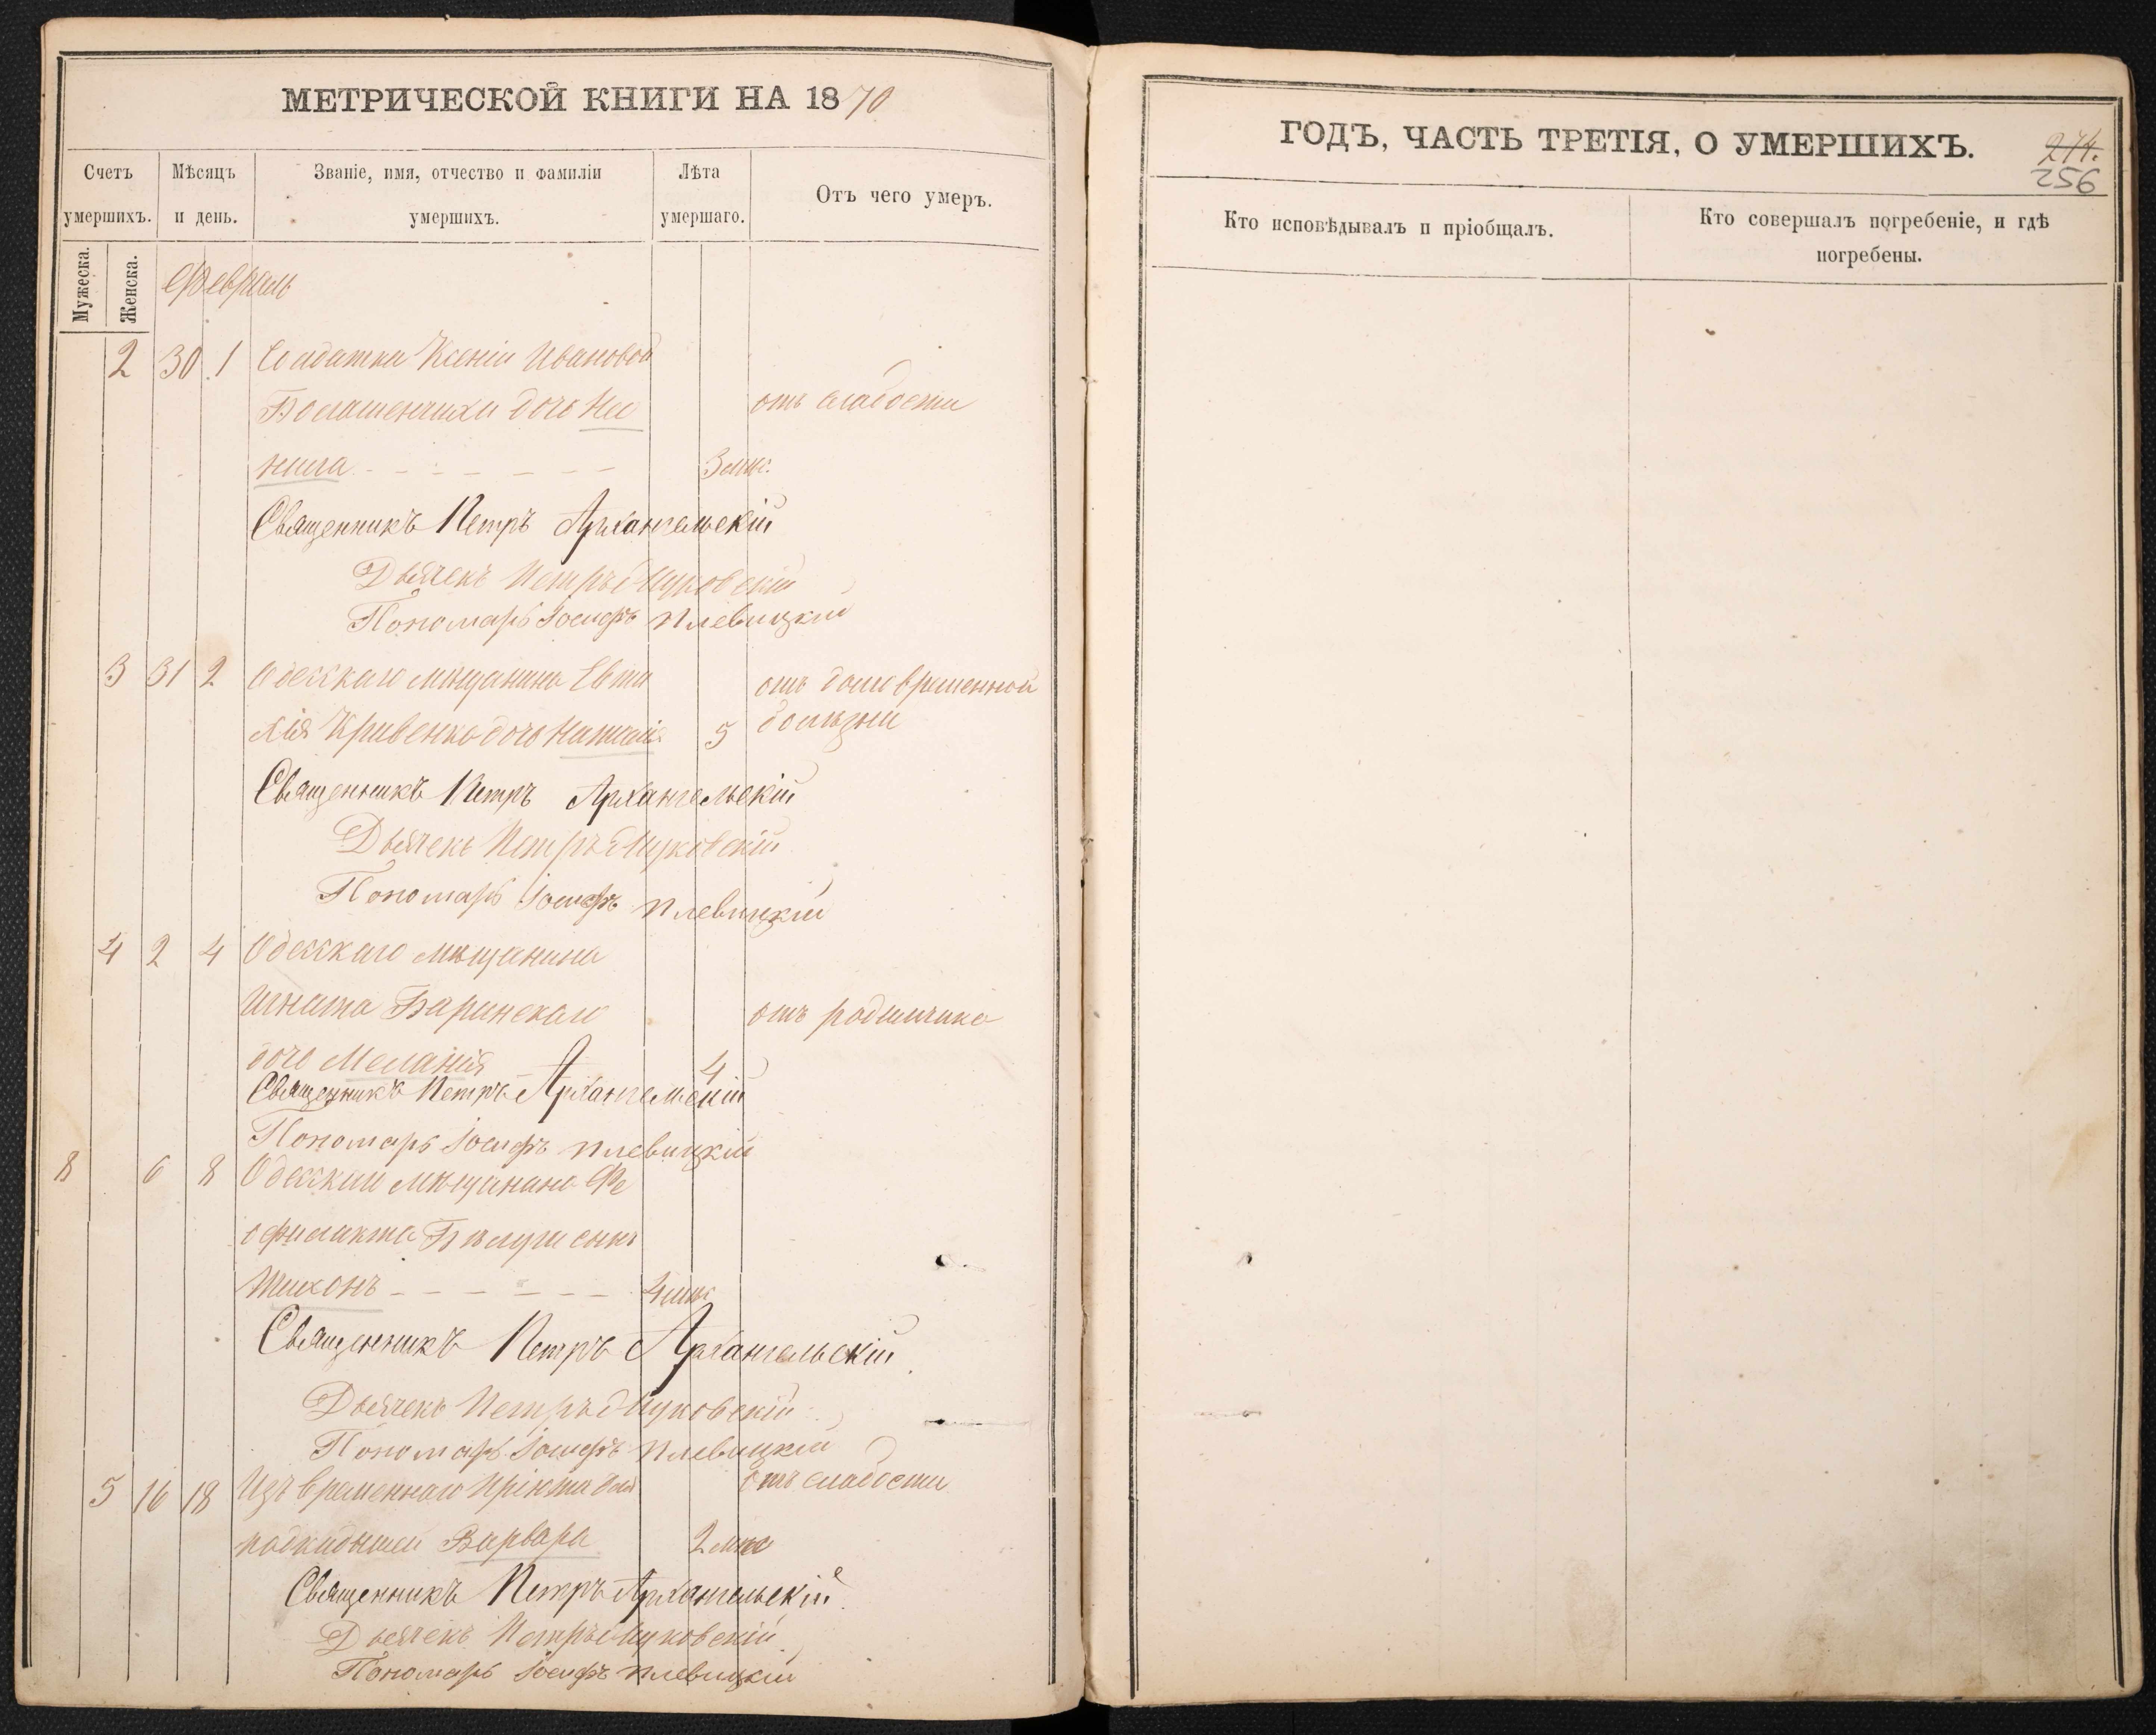 МЕТРИЧЕСКОЙ КНИГИ НА 1870
Счетъ умершихъ.
Мѣсяцъ и день.
Званіе, имя, отчество и фамиліи умершихъ.
Лѣта умершаго.
Отъ чего умеръ.
Мужеска.
Женска.
Февраль
2 30 1 Солдатки Ксеніи Ивановой
дочь Нео
отъ слабости
нила 3 мѣс.
Священникъ Петръ Архангельскій
Дьячекъ Петръ
Пономарь Іосифъ Плевицкій
3 31 2 Одесскаго мѣщанина Евти
отъ долговременной
хія Кривенко дочь Наталія 5
болѣзни
Священникъ Петръ Архангельскій
Дьячекъ Петръ
Пономарь Іосифъ Плевицкій
4 2 4 Одесскаго мѣщанина
Игната Баринскаго
отъ родимчика
дочь Меланія 4
Священникъ Петръ Архангельскій
Пономарь Іосифъ Плевицкій
8 6 8 мѣщанина Фе
офилакта сынъ
Тихонъ 4 мѣс
Священникъ Петръ Архангельскій
Дьячекъ Петръ
Пономарь Іосифъ Плевицкій
5 16 18 Изъ временнаго Пріюта для
отъ слабости
Варвара 2 мѣс
Священникъ Петръ Архангельскій
Дьячекъ Петръ
Пономарь Іосифъ Плевицкій
ГОДЪ, ЧАСТЬ ТРЕТІЯ, О УМЕРШИХЪ.
274.
256
Кто исповѣдывалъ и пріобщалъ.
Кто совершалъ погребеніе, и гдѣ
погребены.